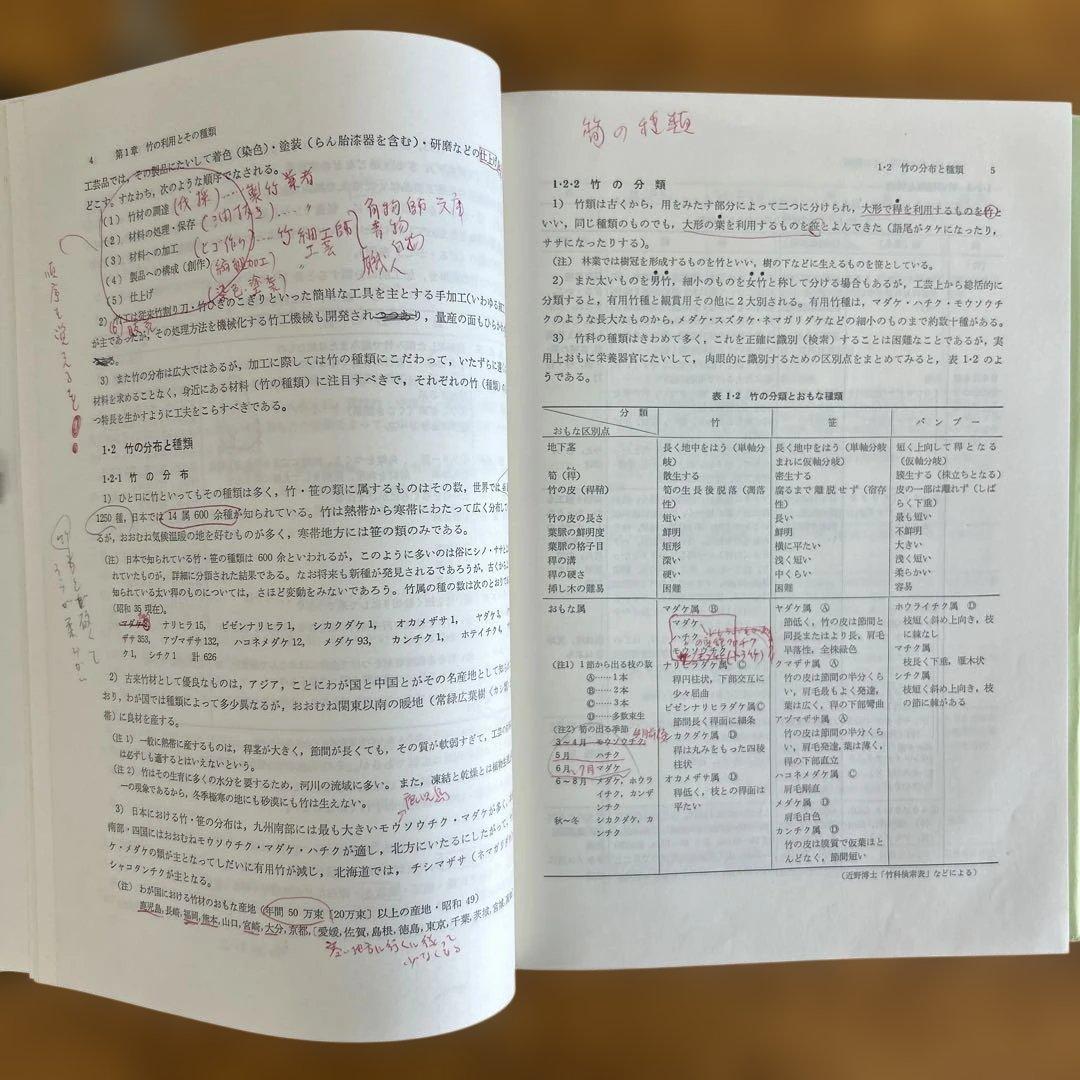 4 第1章 竹の利用とその種類
工芸品では，その製品にたいして着色（染色）・塗装（らん胎漆器を含む）・研磨などの仕上げ
どこす。すなわち，次のような順序でなされる。
（1） 竹材の調達 (伐採)‥‥製竹業者
（2） 材料の処理・保存
（3） 材料への加工 (ヒゴ作り)‥‥竹細工師
工芸
（4） 製品への構成（創作） (編組加工)
（5） 仕上げ (染色 塗装)
(6) 販売
青物
職人
順序も覚えること
2） 竹工は従来竹割り刀・竹びきのこぎりといった簡単な工具を主とする手加工（いわゆる細工）
が主であったが，その処理方法を機械化する竹工機械も開発され，量産の面もひらかれ
る。
3） また竹の分布は広大ではあるが，加工に際しては竹の種類にこだわって，いたずらに遠
材料を求めることなく，身近にある材料（竹の種類）に注目すべきで，それぞれの竹（種類）の
つ特長を生かすように工夫をこらすべきである。
1·2 竹の分布と種類
1·2·1 竹 の 分 布
1） ひと口に竹といってもその種類は多く，竹・笹の類に属するものはその数，世界では
1250種，日本では 14 属 600 余種が知られている。竹は熱帯から寒帯にわたって広く分布して
るが，おおむね気候温暖の地を好むものが多く，寒帯地方には笹の類のみである。
（注） 日本で知られている竹・笹の種類は 600 余といわれるが，このように多いのは俗にシノ・ササと
れていたものが，詳細に分類された結果である。なお将来も新種が発見されるであろうが，古くから
知られている太い稈のものについては，さほど変動をみないであろう。竹属の種の数は次のとおりで
（昭和 35 現在）。
マダケ ナリヒラ 15， ビゼンナリヒラ 1， シカクダケ 1， オカメザサ 1， ヤダケ
ザサ 353， アヅマザサ 132， ハコネメダケ 12， メダケ 93， カンチク 1， ホテイチク
ク 1， シチク 1 計 626
2） 古来竹材として優良なものは，アジア，ことにわが国と中国とがその名産地として知ら
おり，わが国では種類によって多少異なるが，おおむね関東以南の暖地（常緑広葉樹（カシ類）
帯）に良材を産する。
（注 1） 一般に熱帯に産するものは，稈茎が大きく，節間が長くても，その質が軟弱すぎて，工芸
は必ずしも適するとはいえないという。
（注 2） 竹はその生育に多くの水分を要するため，河川の流域に多い。また，凍結と乾燥とは植物
一の現象であるから，冬季極寒の地にも砂漠にも竹は生えない。
鹿児島
3） 日本における竹・笹の分布は，九州南部には最も大きいモウソウチク・マダケが多く，
南部・四国にはおおむねモウソウチク・マダケ・ハチクが適し，北方にいたるにしたがって，
ケ・メダケの類が主となってしだいに有用竹が減じ，北海道では，チシマザサ（ネマガリダケ
シャコタンチクが主となる。
（注） わが国における竹材のおもな産地（年間 50 万束［20万束］以上の産地・昭和 49）
鹿児島，長崎，福岡，熊本，山口，宮崎，大分，京都，［愛媛，佐賀，島根，徳島，東京，千葉，茨城，宮城，
寒い地方に行くに従って
少なくなる
筍の種類
1·2 竹の分布と種類 5
1·2·2 竹 の 分 類
1） 竹類は古くから，用をみたす部分によって二つに分けられ，大形で稈を利用するものを竹と
いい，同じ種類のものでも，大形の葉を利用するものを笹とよんできた（語尾がタケになったり，
ササになったりする）。
（注） 林業では樹冠を形成するものを竹といい，樹の下などに生えるものを笹としている。
2） また太いものを男竹，細小のものを女竹と称して分ける場合もあるが，工芸上から総括的に
分類すると，有用竹種と観賞用その他に 2 大別される。有用竹種は，マダケ・ハチク・モウソウチ
クのような長大なものから，メダケ・スズタケ・ネマガリダケなどの細小のものまで約数十種がある。
3） 竹科の種類はきわめて多く，これを正確に識別（検索）することは困難なことであるが，実
用上おもに栄養器官にたいして，肉眼的に識別するための区別点をまとめてみると，表 1·2 のよ
うである。
表 1·2 竹の分類とおもな種類
分 類 竹 笹 バ ン ブ ー
おもな区別点
地下茎 長く地中をはう（単軸分岐） 長く地中をはう（単軸分岐まれに仮軸分岐） 短く上向して稈となる（仮軸分岐）
筍（稈） 散生する 密生する 簇生する（株立ちとなる）
竹の皮（稈鞘） 筍の生長後脱落（凋落性） 腐るまで離脱せず（宿存性） 皮の一部は離れず（しばらく下垂）
竹の皮の長さ 短い 長い 最も短い
葉脈の鮮明度 鮮明 鮮明 不鮮明
葉脈の格子目 矩形 横に平たい 大きい
稈の溝 深い 浅く短い 浅く短い
稈の硬さ 硬い 中くらい 柔らかい
挿し木の難易 困難 困難 容易
おもな属
（注1） 1 節から出る枝の数
Ⓐ……1 本
Ⓑ……2 本
Ⓒ……3 本
Ⓓ……多数束生
（注2） 筍の出る季節
3～4 月 モウソウチク 4月前後
5 月 ハチク
6 月、7月 マダケ
6～8 月 メダケ，ホウライチク，カンザンチク
秋～冬 シカクダケ，カンチク
マダケ属 Ⓑ
マダケ
ハチク
モウソウチク
ナリヒラダケ属 Ⓒ
稈円柱状，下部交互に
少々屈曲
ビゼンナリヒラダケ属Ⓒ
節間長く稈面に細条
シカクダケ属 Ⓓ
稈は丸みをもった四稜
柱状
オカメザサ属 Ⓓ
稈低く，枝との稈面は
平たい
ヤダケ属 Ⓐ
節低く，竹の皮は節間と
同長またはより長，肩毛
早落性，全株緑色
クマザサ属 Ⓐ
竹の皮は節間の半分くら
い，肩毛最もよく発達，
葉は広く，稈の下部彎曲
アヅマザサ属 Ⓐ
竹の皮は節間の半分くら
い，肩毛発達，葉は薄く，
稈の下部直立
ハコネメダケ属 Ⓒ
肩毛剛直
メダケ属 Ⓓ
肩毛白色
カンチク属 Ⓓ
竹の皮は膜質で仮葉ほと
んどなく，節間短い
ホウライチク属 Ⓓ
枝短く斜め上向き，枝
に棘なし
マチク属
枝長く下垂，雁木状
シチク属
枝短く斜め上向き，枝
の節に棘がある
（近野博士「竹科検索表」などによる）